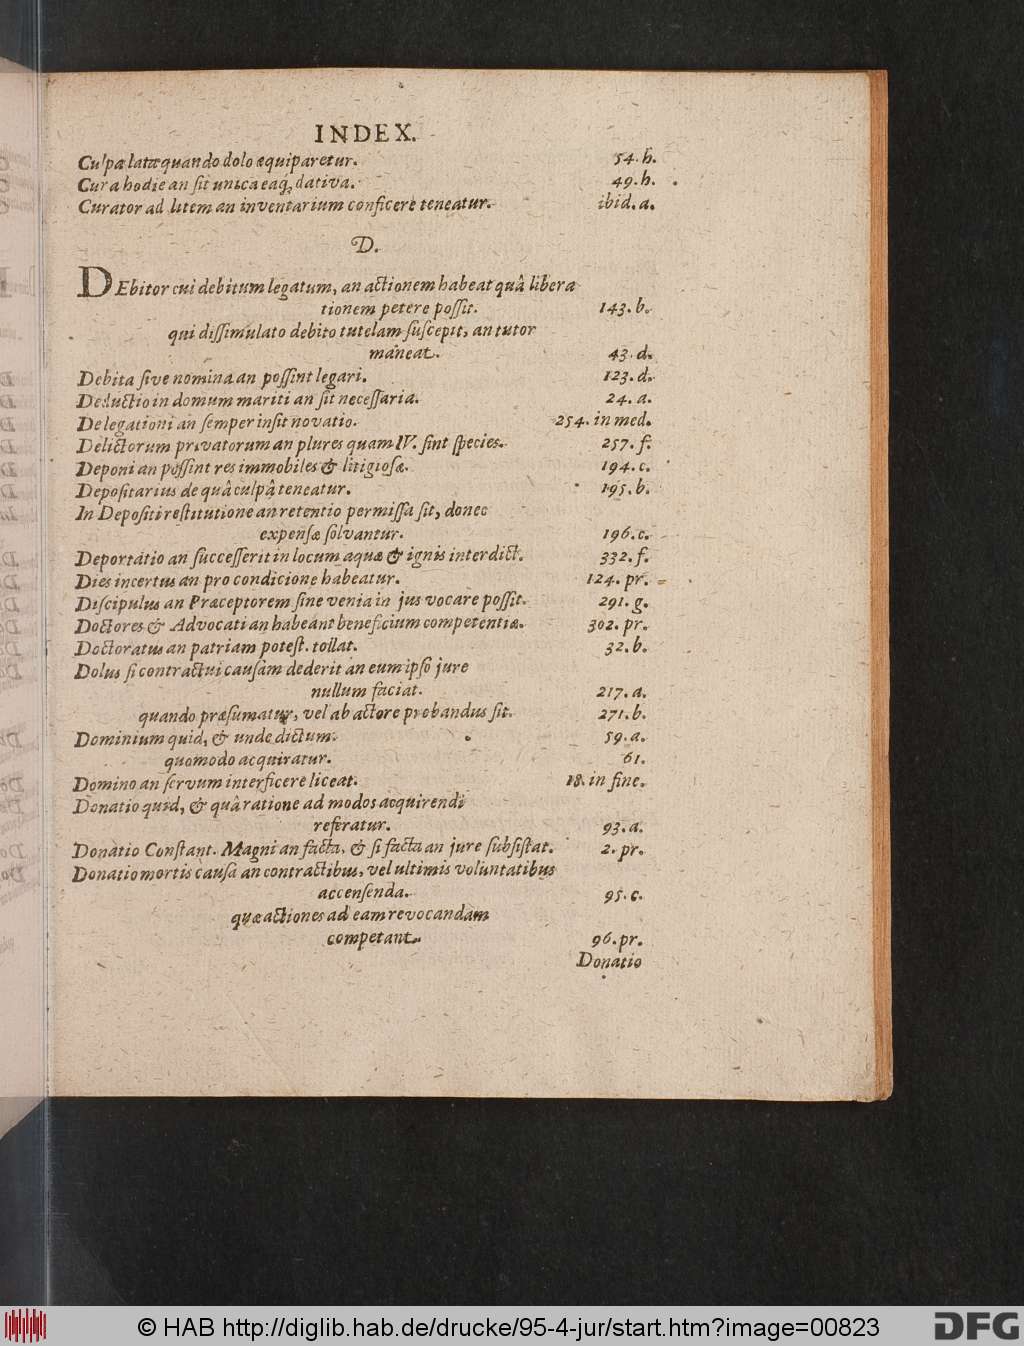 INDEX.
Culpæ latæ quando dolo æquiparetur. 54. h.
Cura hodie an sit unica eaq; dativa. 49. h.
Curator ad litem an inventarium conficere teneatur. ibid. a.
D.
DEbitor cui debitum legatum, an actionem habeat quâ libera
tionem petere possit. 143. b.
qui dissimulato debito tutelam suscepit, an tutor
maneat. 43. d.
Debita sive nomina an possint legari. 123. d.
Deductio in domum mariti an sit necessaria. 24. a.
Delegationi an semper insit novatio. 254. in med.
Delictorum privatorum an plures quam IV. sint species. 257. f.
Deponi an possint res immobiles & litigiosæ. 194. c.
Depositarius de quâ culpâ teneatur. 195. b.
In Depositi restitutione an retentio permissa sit, donec
expensæ solvantur. 196. c.
Deportatio an successerit in locum aquæ & ignis interdict. 332. f.
Dies incertus an pro condicione habeatur. 124. pr.
Discipulus an Præceptorem sine venia in jus vocare possit. 291. g.
Doctores & Advocati an habeant beneficium competentiæ. 302. pr.
Doctoratus an patriam potest. tollat. 32. b.
Dolus si contractui causam dederit an eum ipso jure
nullum faciat. 217. a.
quando præsumatur, vel ab actore probandus sit. 271. b.
Dominium quid, & unde dictum. 59. a.
quomodo acquiratur. 61.
Domino an servum interficere liceat. 18. in fine.
Donatio quid, & quâ ratione ad modos acquirendi
referatur. 93. a.
Donatio Constant. Magni an facta, & si facta an jure subsistat. 2. pr.
Donatio mortis causa an contractibus, vel ultimis voluntatibus
accensenda. 95. c.
quæ actiones ad eam revocandam
competant. 96. pr.
Donatio
© HAB http://diglib.hab.de/drucke/95-4-jur/start.htm?image=00823
DFG